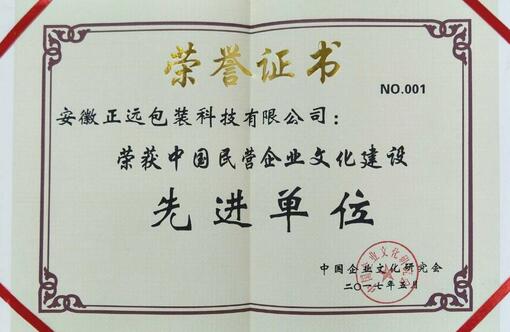 荣誉证书
NO.001
安徽正远包装科技有限公司：
荣获中国民营企业文化建设
先进单位
中国企业文化研究会
二〇一七年五月
中国企业文化研究会